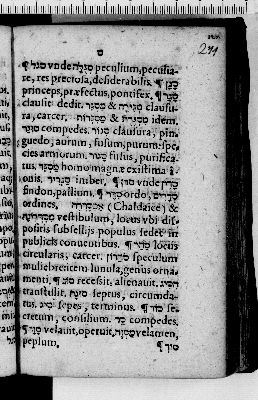 ס
241
¶ סגל vnde סְגֻלָּה peculium, peculia-
re, res preciosa, desiderabilis. ¶ סָגָן
princeps, præfectus, pontifex. ¶ סָגַר
clausit dedit. סְגִירָה & מִסְגָּר clausu-
ra, carcer. & idem.
compedes. סְגוֹר clausura, pin-
guedo, aurum, fusum, purum: spe-
cies armorum. סָגוּר fusus, purifica-
tus. homo magnæ existima i-
onis. סַגְרִיר imber. ¶ סדן vnde סָדִין
sindon, pallium. ¶ סֵדֶר ordo,
ordines. (Chaldaice) &
vestibulum, locus vbi dis-
positis subsellijs populus sedet in
publicis conuentibus. ¶ סֹהַר locus
circularis, carcer. speculum
muliebre: item lunula, genus orna-
menti. ¶ סוג recessit, alienauit.
transtulit. סוּגָה septus, circumda-
tus. sepes, terminus. ¶ סוד se-
cretum, consilium. סַד compedes.
¶ סוה velauit, operuit. מַסְוֶה velamen,
peplum. ¶ סוך